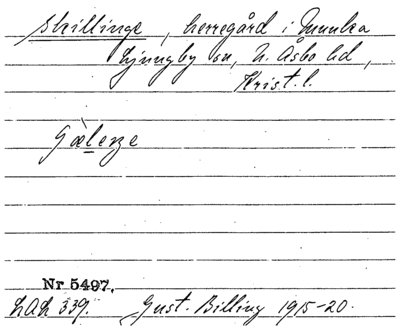 Skillinge, herregård i Munka
Ljungby sn, N. Åsbo hd,
Krist. l.
Nr 5497.
LAL 339. Gust. Billing 1915-20.